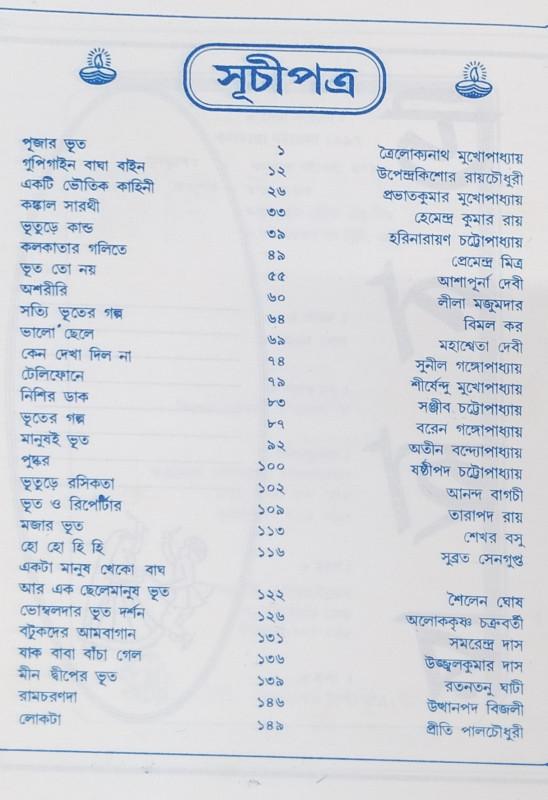 সূচীপত্র
পূজার ভূত ১ ত্রৈলোক্যনাথ মুখোপাধ্যায়
গুপিগাইন বাঘা বাইন ১২ উপেন্দ্রকিশোর রায়চৌধুরী
একটি ভৌতিক কাহিনী ২৬ প্রভাতকুমার মুখোপাধ্যায়
কঙ্কাল সারথী ৩৩ হেমেন্দ্র কুমার রায়
ভূতুড়ে কান্ড ৩৯ হরিনারায়ণ চট্টোপাধ্যায়
কলকাতার গলিতে ৪৯ প্রেমেন্দ্র মিত্র
ভূত তো নয় ৫৫ আশাপূর্না দেবী
অশরীরি ৬০ লীলা মজুমদার
সত্যি ভূতের গল্প ৬৪ বিমল কর
ভালো ছেলে ৬৯ মহাশ্বেতা দেবী
কেন দেখা দিল না ৭৪ সুনীল গঙ্গোপাধ্যায়
টেলিফোনে ৭৯ শীর্ষেন্দু মুখোপাধ্যায়
নিশির ডাক ৮৩ সঞ্জীব চট্টোপাধ্যায়
ভূতের গল্প ৮৭ বরেন গঙ্গোপাধ্যায়
মানুষই ভূত ৯২ অতীন বন্দ্যোপাধ্যায়
পুষ্কর ১০০ ষষ্ঠীপদ চট্টোপাধ্যায়
ভূতুড়ে রসিকতা ১০২ আনন্দ বাগচী
ভূত ও রিপোর্টার ১০৯ তারাপদ রায়
মজার ভূত ১১৩ শেখর বসু
হো হো হি হি ১১৬ সুব্রত সেনগুপ্ত
একটা মানুষ খেকো বাঘ
আর এক ছেলেমানুষ ভূত ১২২ শৈলেন ঘোষ
ভোম্বলদার ভূত দর্শন ১২৬ অলোককৃষ্ণ চক্রবর্তী
বটুকদের আমবাগান ১৩১ সমরেন্দ্র দাস
যাক বাবা বাঁচা গেল ১৩৬ উজ্জ্বলকুমার দাস
মীন দ্বীপের ভূত ১৩৯ রতনতনু ঘাটী
রামচরণদা ১৪৬ উত্থানপদ বিজলী
লোকটা ১৪৯ প্রীতি পালচৌধুরী